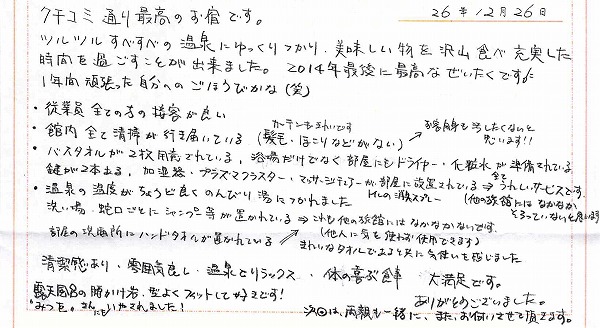 26年12月26日
クチコミ通り最高のお宿です。
ツルツルすべすべの温泉にゆっくりつかり、美味しい物を沢山食べ充実した
時間を過ごすことが出来ました。2014年最後に最高なぜいたくです。
1年間頑張った自分へのごほうびかな(笑)
・従業員全ての方の接客が良い
カーテンもきれいです
・館内全て清掃が行き届いている(髪毛・ほこりなどがない)
・バスタオルが2枚用意されている、浴場だけでなく部屋にもドライヤー・化粧水が準備されている
鍵が2本ある、加湿器・プラズマクラスター・マッサージチェアーが部屋に設置されている⇒全てうれしいサービスです。
トイレの消臭スプレー
(他の旅館にはなかなか
そろっていないと思います)
・温泉の温度がちょうど良くのんびり湯につかれました
洗い場・蛇口ごとにシャンプー等が置かれている⇒これも他の旅館にはなかなかないです。
(他人に気を使わず使用できます)
部屋の洗面所にハンドタオルが置かれている
きれいなタオルであると共に気使いを感じました
清潔感あり・雰囲気良し・温泉でリラックス・体の喜ぶ食事 大満足です。
ありがとうございました。
露天風呂の寄りかけ岩、型よくフィットして好きです!
"みつを"さんにもいやされました!
次回は、両親も一緒に、また、お伺いさせて頂きます。